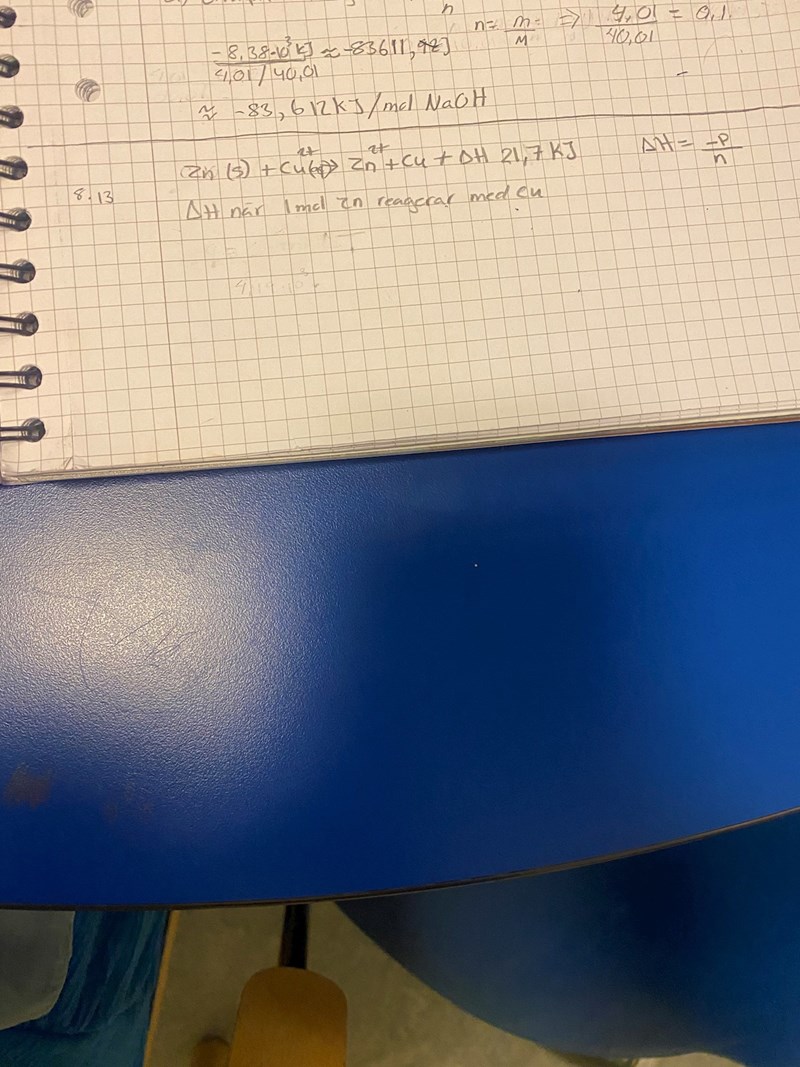 n
n = m/M => 4,01/40,01 = 0,1
-8,38·10³ kJ / 4,01/40,01 ≈ -83611,92J
≈ -83,612 kJ/mol NaOH
8.13
Zn (s) + Cu²⁺(aq) → Zn²⁺ + Cu + ΔH 21,7 KJ
ΔH = -P/n
ΔH när 1 mol Zn reagerar med cu